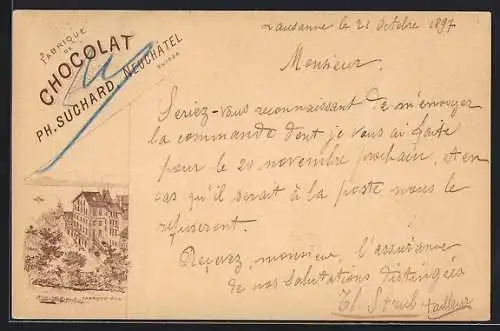 FABRIQUE
DE
CHOCOLAT
PH. SUCHARD, NEUCHÂTEL
SUISSE
Lausanne le 21 octobre 1897
Monsieur.
Seriez-vous reconnaissant de m'envoyer
la commande dont je vous ai faite
pour le 20 novembre prochain, et en
cas qu'il serait à la poste nous le
refuseront.
Reçevez, monsieur, l'assurance
de nos salutations distingées
Strub, tailleur